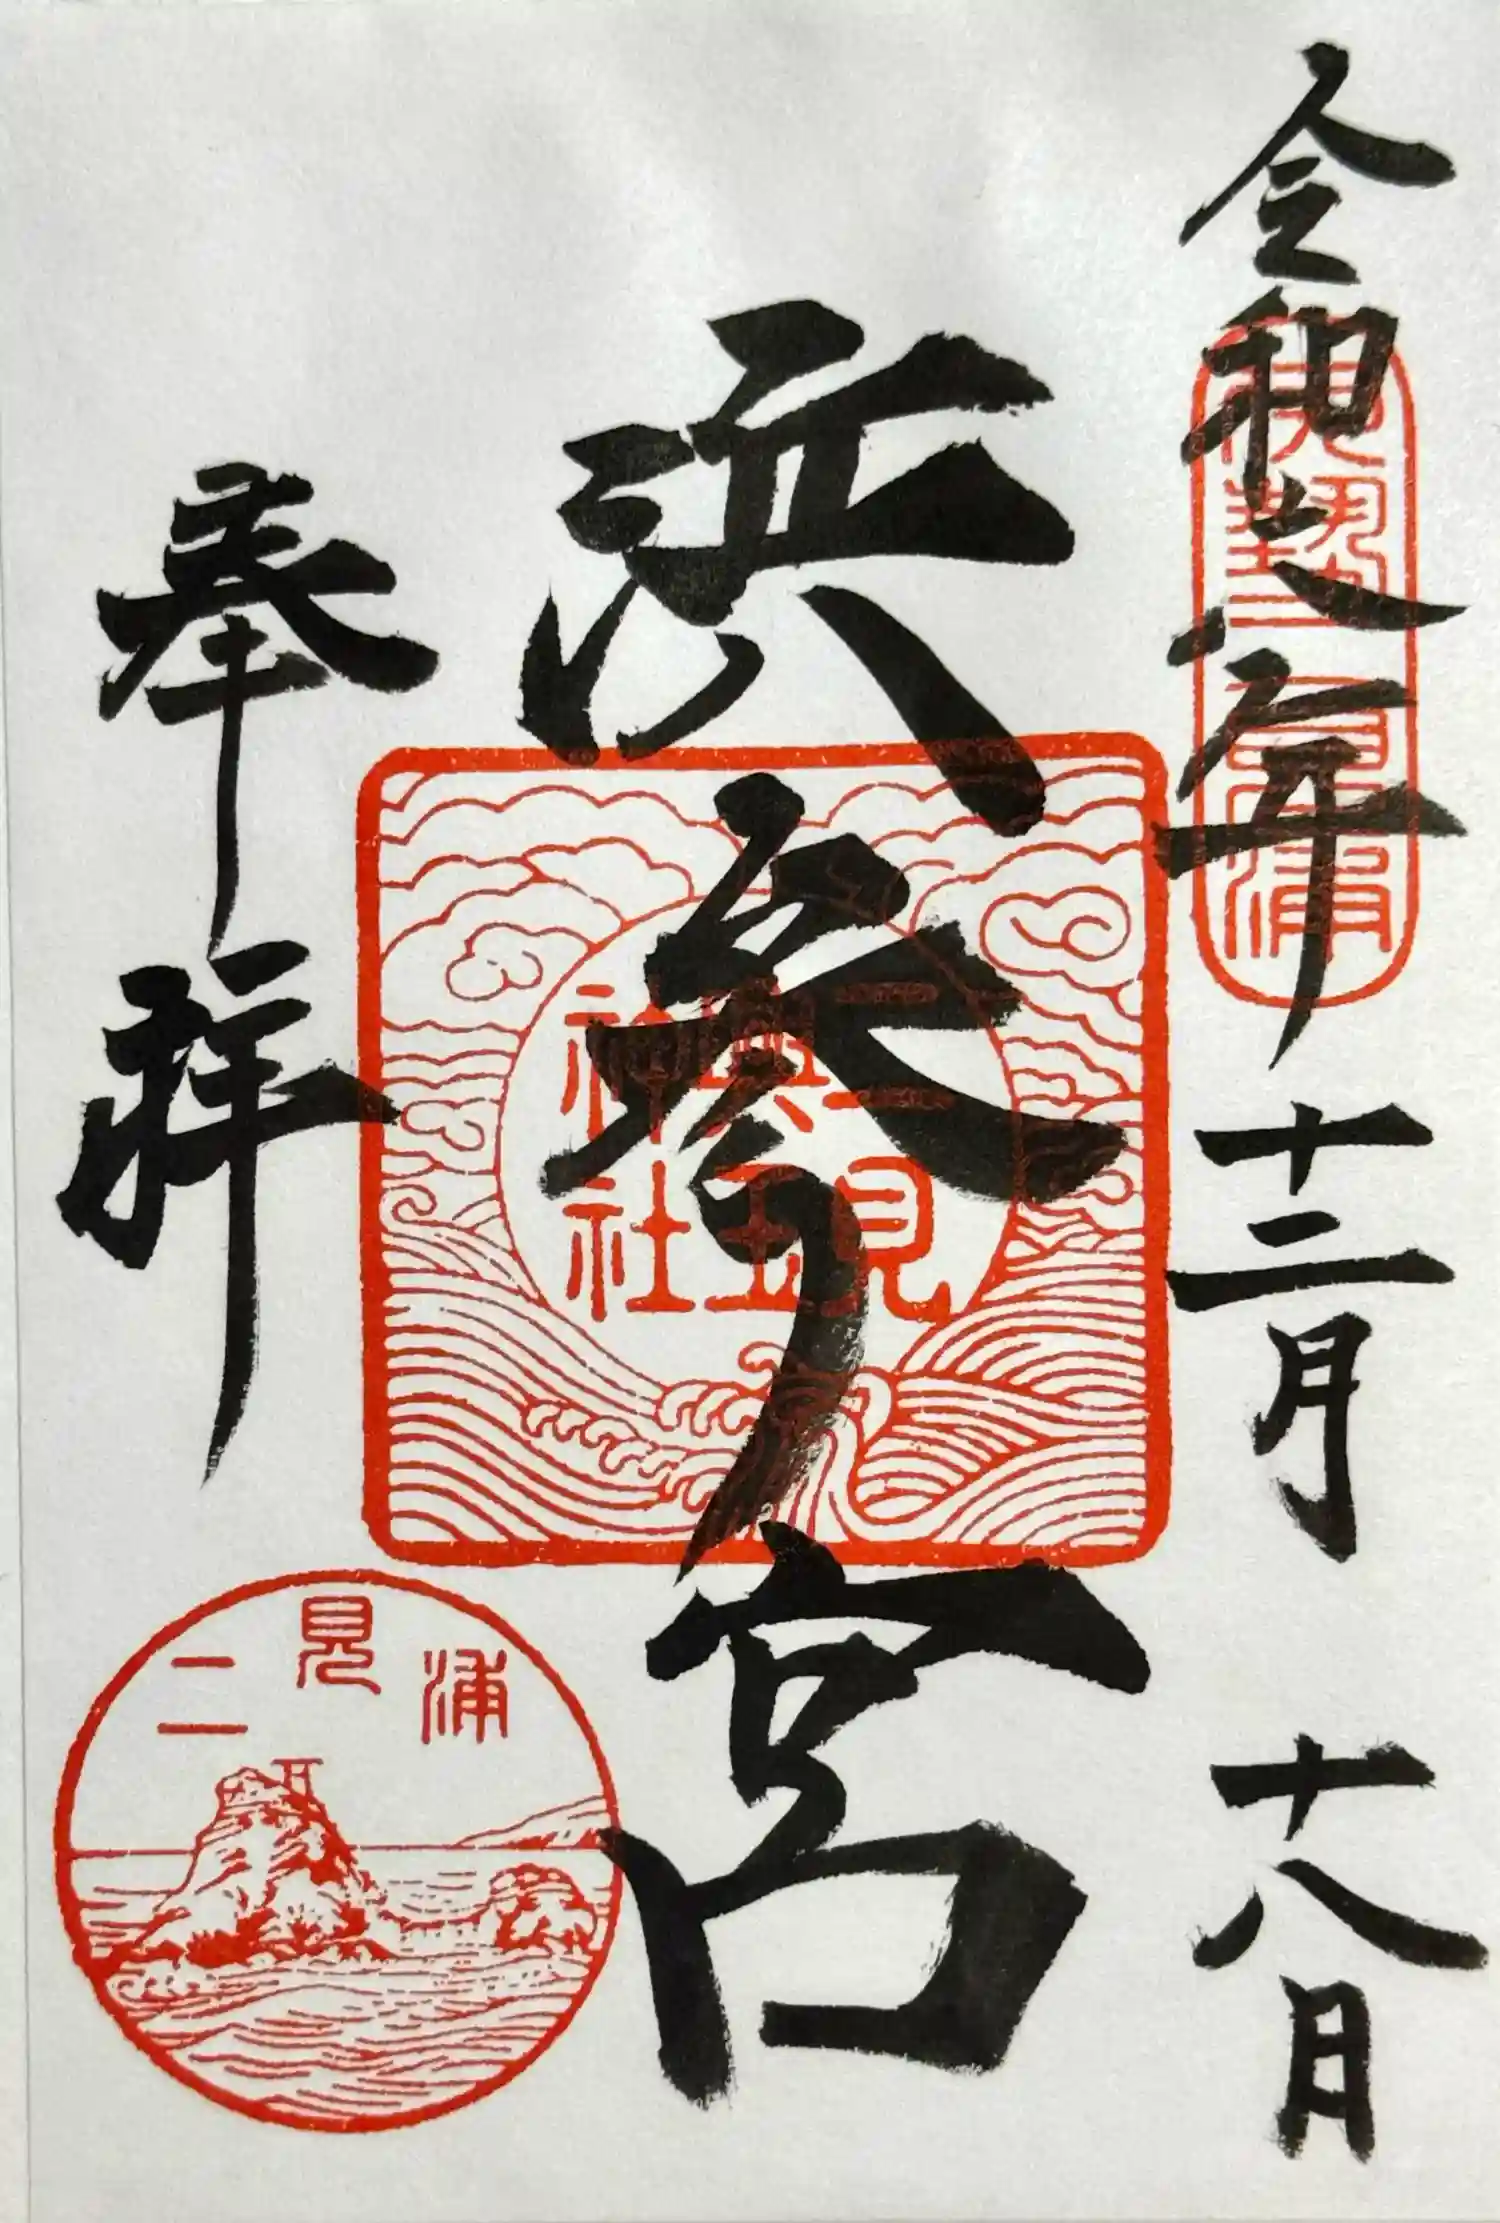 令和年十二月十八日
伊勢二見浦
浜参宮
二見
興玉
神社
奉拝
二見浦